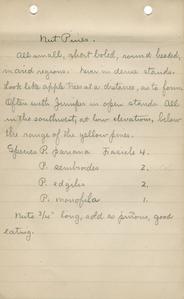 Nut Pines.
All small, short boled, round headed,
in arid regions. Never in dense stands.
Look like apple trees at a distance, as to form.
Often with juniper in open stands. All
in the southwest, at low elevations, below
the range of the yellow pines.
Species P. parrana. Fascicle 4.
P. cembroides 2.
P. edulis 2.
P. monofila 1.
Nuts 3/4" long, sold as piñons, good
eating.